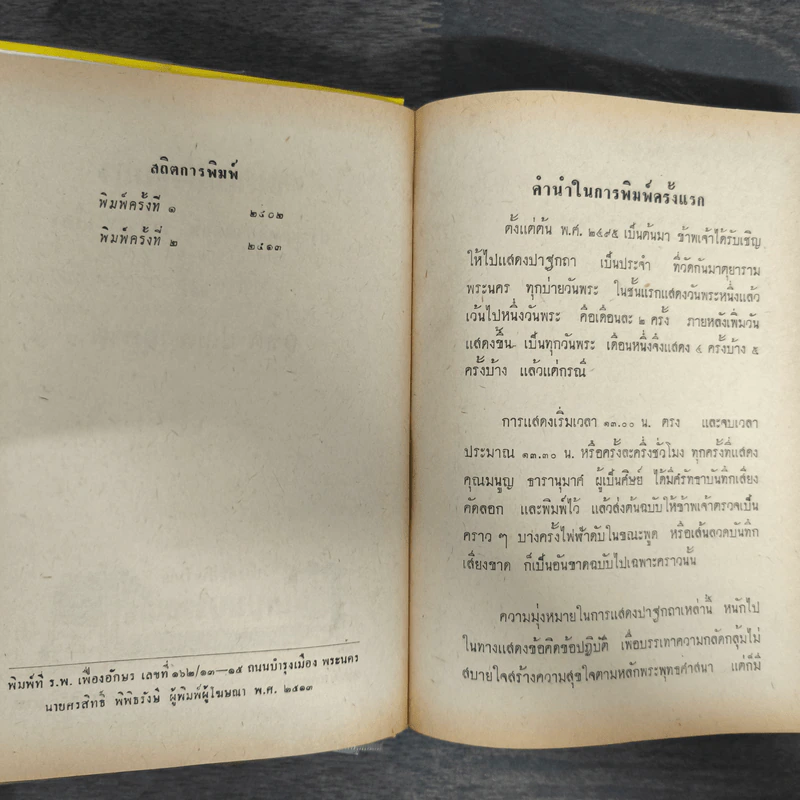 สถิตการพิมพ์
พิมพ์ครั้งที่ ๑ ๒๔๐๒
พิมพ์ครั้งที่ ๒ ๒๕๑๓
พิมพ์ที่ ร.พ. เฟื่องอักษร เลขที่ ๑๖๒/๑๓—๑๕ ถนนบำรุงเมือง พระนคร
นายศรสิทธิ์ พิพิธรังษี ผู้พิมพ์ผู้โฆษณา พ.ศ. ๒๕๑๓
คำนำในการพิมพ์ครั้งแรก
ตั้งแต่ต้น พ.ศ. ๒๔๙๕ เป็นต้นมา ข้าพเจ้าได้รับเชิญ
ให้ไปแสดงปาฐกถา เป็นประจำ ที่วัดกันมาตุยาราม
พระนคร ทุกบ่ายวันพระ ในชั้นแรกแสดงวันพระหนึ่งแล้ว
เว้นไปหนึ่งวันพระ คือเดือนละ ๒ ครั้ง ภายหลังเพิ่มวัน
แสดงขึ้น เป็นทุกวันพระ เดือนหนึ่งจึงแสดง ๔ ครั้งบ้าง ๕
ครั้งบ้าง แล้วแต่กรณี
การแสดงเริ่มเวลา ๑๓.๐๐ น. ตรง และจบเวลา
ประมาณ ๑๓.๓๐ น. หรือครั้งละครึ่งชั่วโมง ทุกครั้งที่แสดง
คุณมนูญ ธารานุมาศ ผู้เป็นศิษย์ ได้มีศรัทธาบันทึกเสียง
คัดลอก และพิมพ์ไว้ แล้วส่งต้นฉบับให้ข้าพเจ้าตรวจเป็น
คราว ๆ บางครั้งไฟฟ้าดับในขณะพูด หรือเส้นลวดบันทึก
เสียงขาด ก็เป็นอันขาดฉบับไปเฉพาะคราวนั้น
ความมุ่งหมายในการแสดงปาฐกถาเหล่านี้ หนักไป
ในทางแสดงข้อคิดข้อปฏิบัติ เพื่อบรรเทาความกลัดกลุ้มไม่
สบายใจสร้างความสุขใจตามหลักพระพุทธศาสนา แต่ก็มี